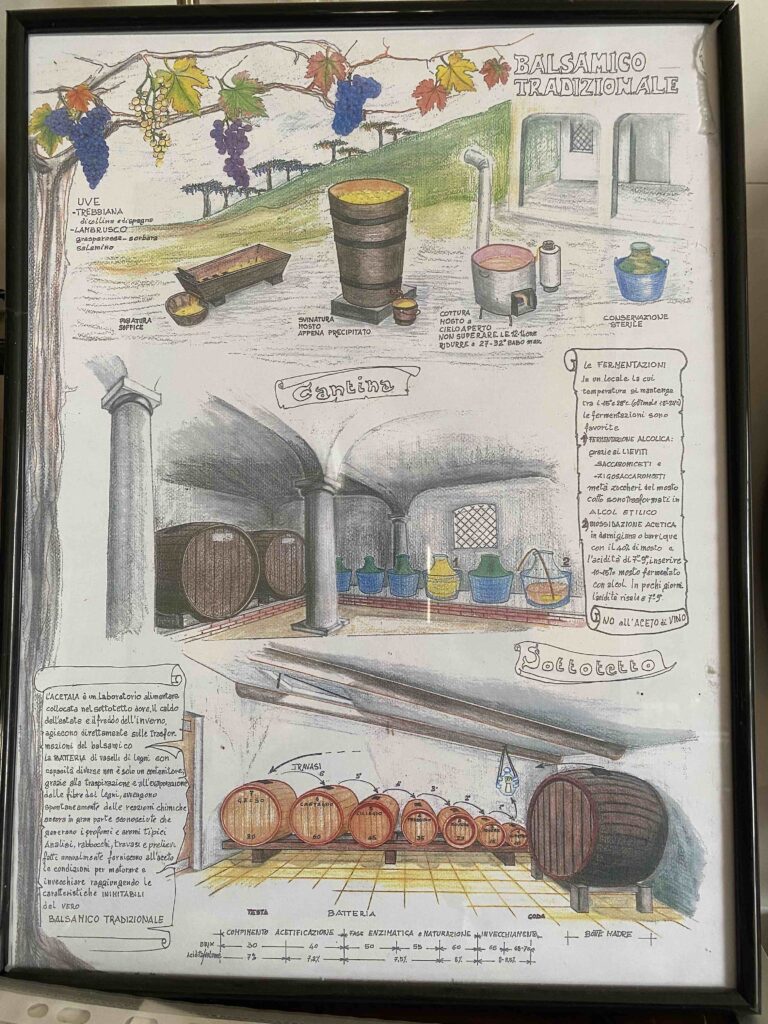 BALSAMICO
TRADIZIONALE
UVE
-TREBBIANA
di collina e di spagna
-LAMBRUSCO
grasparossa - sorbara
salamino
PIGIATURA
SOFFICE
SVINATURA
MOSTO
APPENA PRECIPITATO
COTTURA
MOSTO a
CIELO APERTO
NON SUPERARE LE 12-14 ore
RIDURRE a 27-32° BABO max.
CONSERVAZIONE
STERILE
Cantina
Le FERMENTAZIONI
In un locale la cui
temperatura si mantenga
tra i
le fermentazioni sono
favorite
1 FERMENTAZIONE ALCOLICA:
grazie ai LIEVITI
SACCAROMICETI e
ZIGOSACCAROMICETI
metà zuccheri del mosto
cotto sono trasformati in
ALCOL ETILICO
2 BIOSSIDAZIONE ACETICA
in damigiana o barrique
con il 40% di mosto a
l'acidità di 7°-9°, inserire
mosto fermentato
con alcol. In pochi giorni
l'acidità risale a 7°-9°
NO all'ACETO di VINO
2
Sottotetto
L'ACETAIA è un laboratorio alimentare
collocata nel sottotetto dove, il caldo
dell'estate e il freddo dell'inverno,
agiscono direttamente sulle trasfor-
mazioni del balsamico
La BATTERIA di vaselli di legni con
capacità diverse non è solo un contenitore,
grazie alla traspirazione e all'evaporazione
dalle fibre dei legni, avvengono
spontaneamente delle reazioni chimiche
ancora in gran parte sconosciute che
generano i profumi e aromi tipici
Analisi, rabbocchi, travasi e prelievi
fatti annualmente forniscono all'aceto
le condizioni per maturare e
invecchiare raggiungendo le
caratteristiche INIMITABILI
del VERO
BALSAMICO TRADIZIONALE
TRAVASI
GELSO
80
CASTAGNO
60
CILIEGIO
45
TESTA
BATTERIA
CODA
COMPIMENTO ACETIFICAZIONE
FASE ENZIMATICA e MATURAZIONE
INVECCHIAMENTO
BOTTE MADRE
BRIX
30
40
50
55
60
acidità/volume
7%
7,2%
7,5%
8%